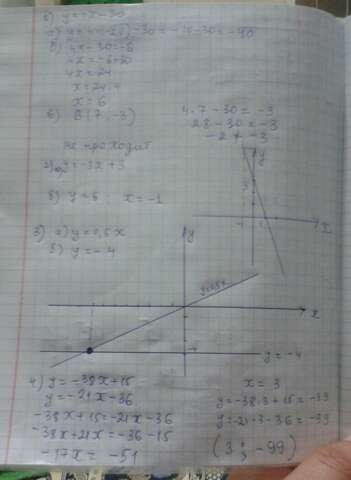 y = 4x - 30
а) y = 4 · (-25) - 30 = - - 30 = -90
б) 4x - 30 = -6
4x = -6 + 30
4x = 24
x = 24 : 4
x = 6
в) B (7; -3)
4 · 7 - 30 = -3
28 - 30 = -3
-2 ≠ -3
не проходит
2) y = -3x + 3
б) y = 6 ; x = -1
y
x
3) а) y = 0,5x
б) y = -4
y
x
y = -4
4) y = -38x + 15
y = -21x - 36
-38x + 15 = -21x - 36
-38x + 21x = -36 - 15
-17x = -51
x = 3
y = -38 · 3 + 15 = -99
y = -21 · 3 - 36 = -99
(3 ; -99)